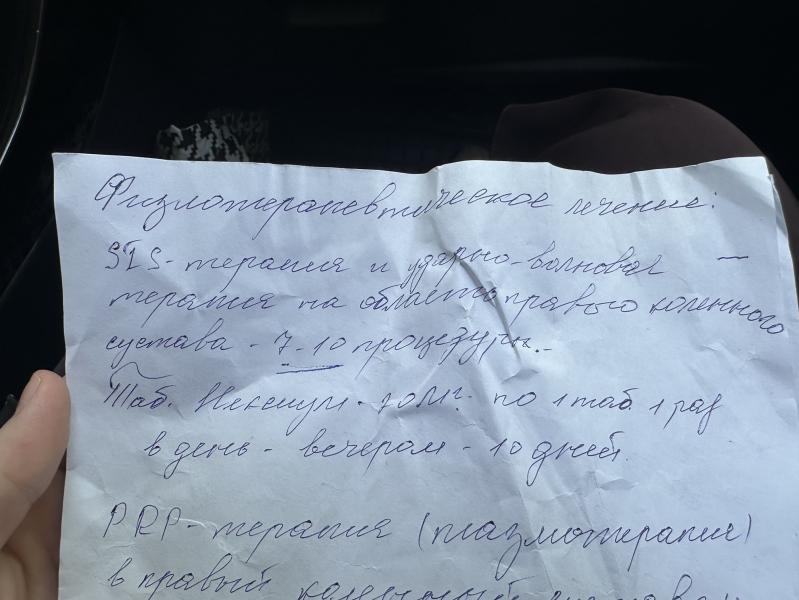 Физиотерапевтическое лечение:
SIS-терапия и ударно-волновая —
терапия на область правого коленного
сустава - 7-10 процедур.-
Таб. Нексиум по 1 таб. 1 раз
в день - вечером - 10 дней.
PRP-терапия (плазмотерапия)
в правый коленный